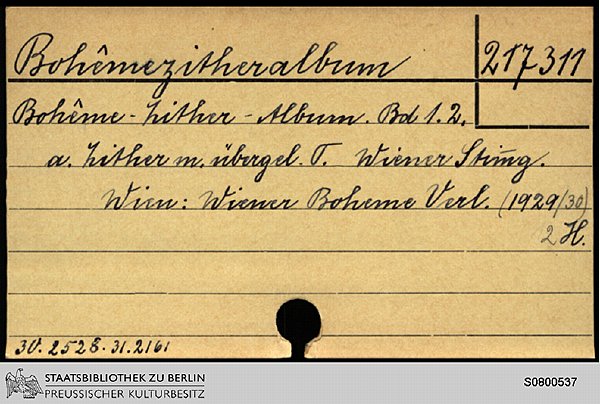 Bohêmezitheralbum 217311
Bohême-Zither-Album. Bd 1.2.
a. Zither m. übergel. T. Wiener Stimg.
Wien: Wiener Boheme Verl. (1929/30)
2 H.
30. 2528. 31.2161
STAATSBIBLIOTHEK ZU BERLIN
PREUSSISCHER KULTURBESITZ
S0800537